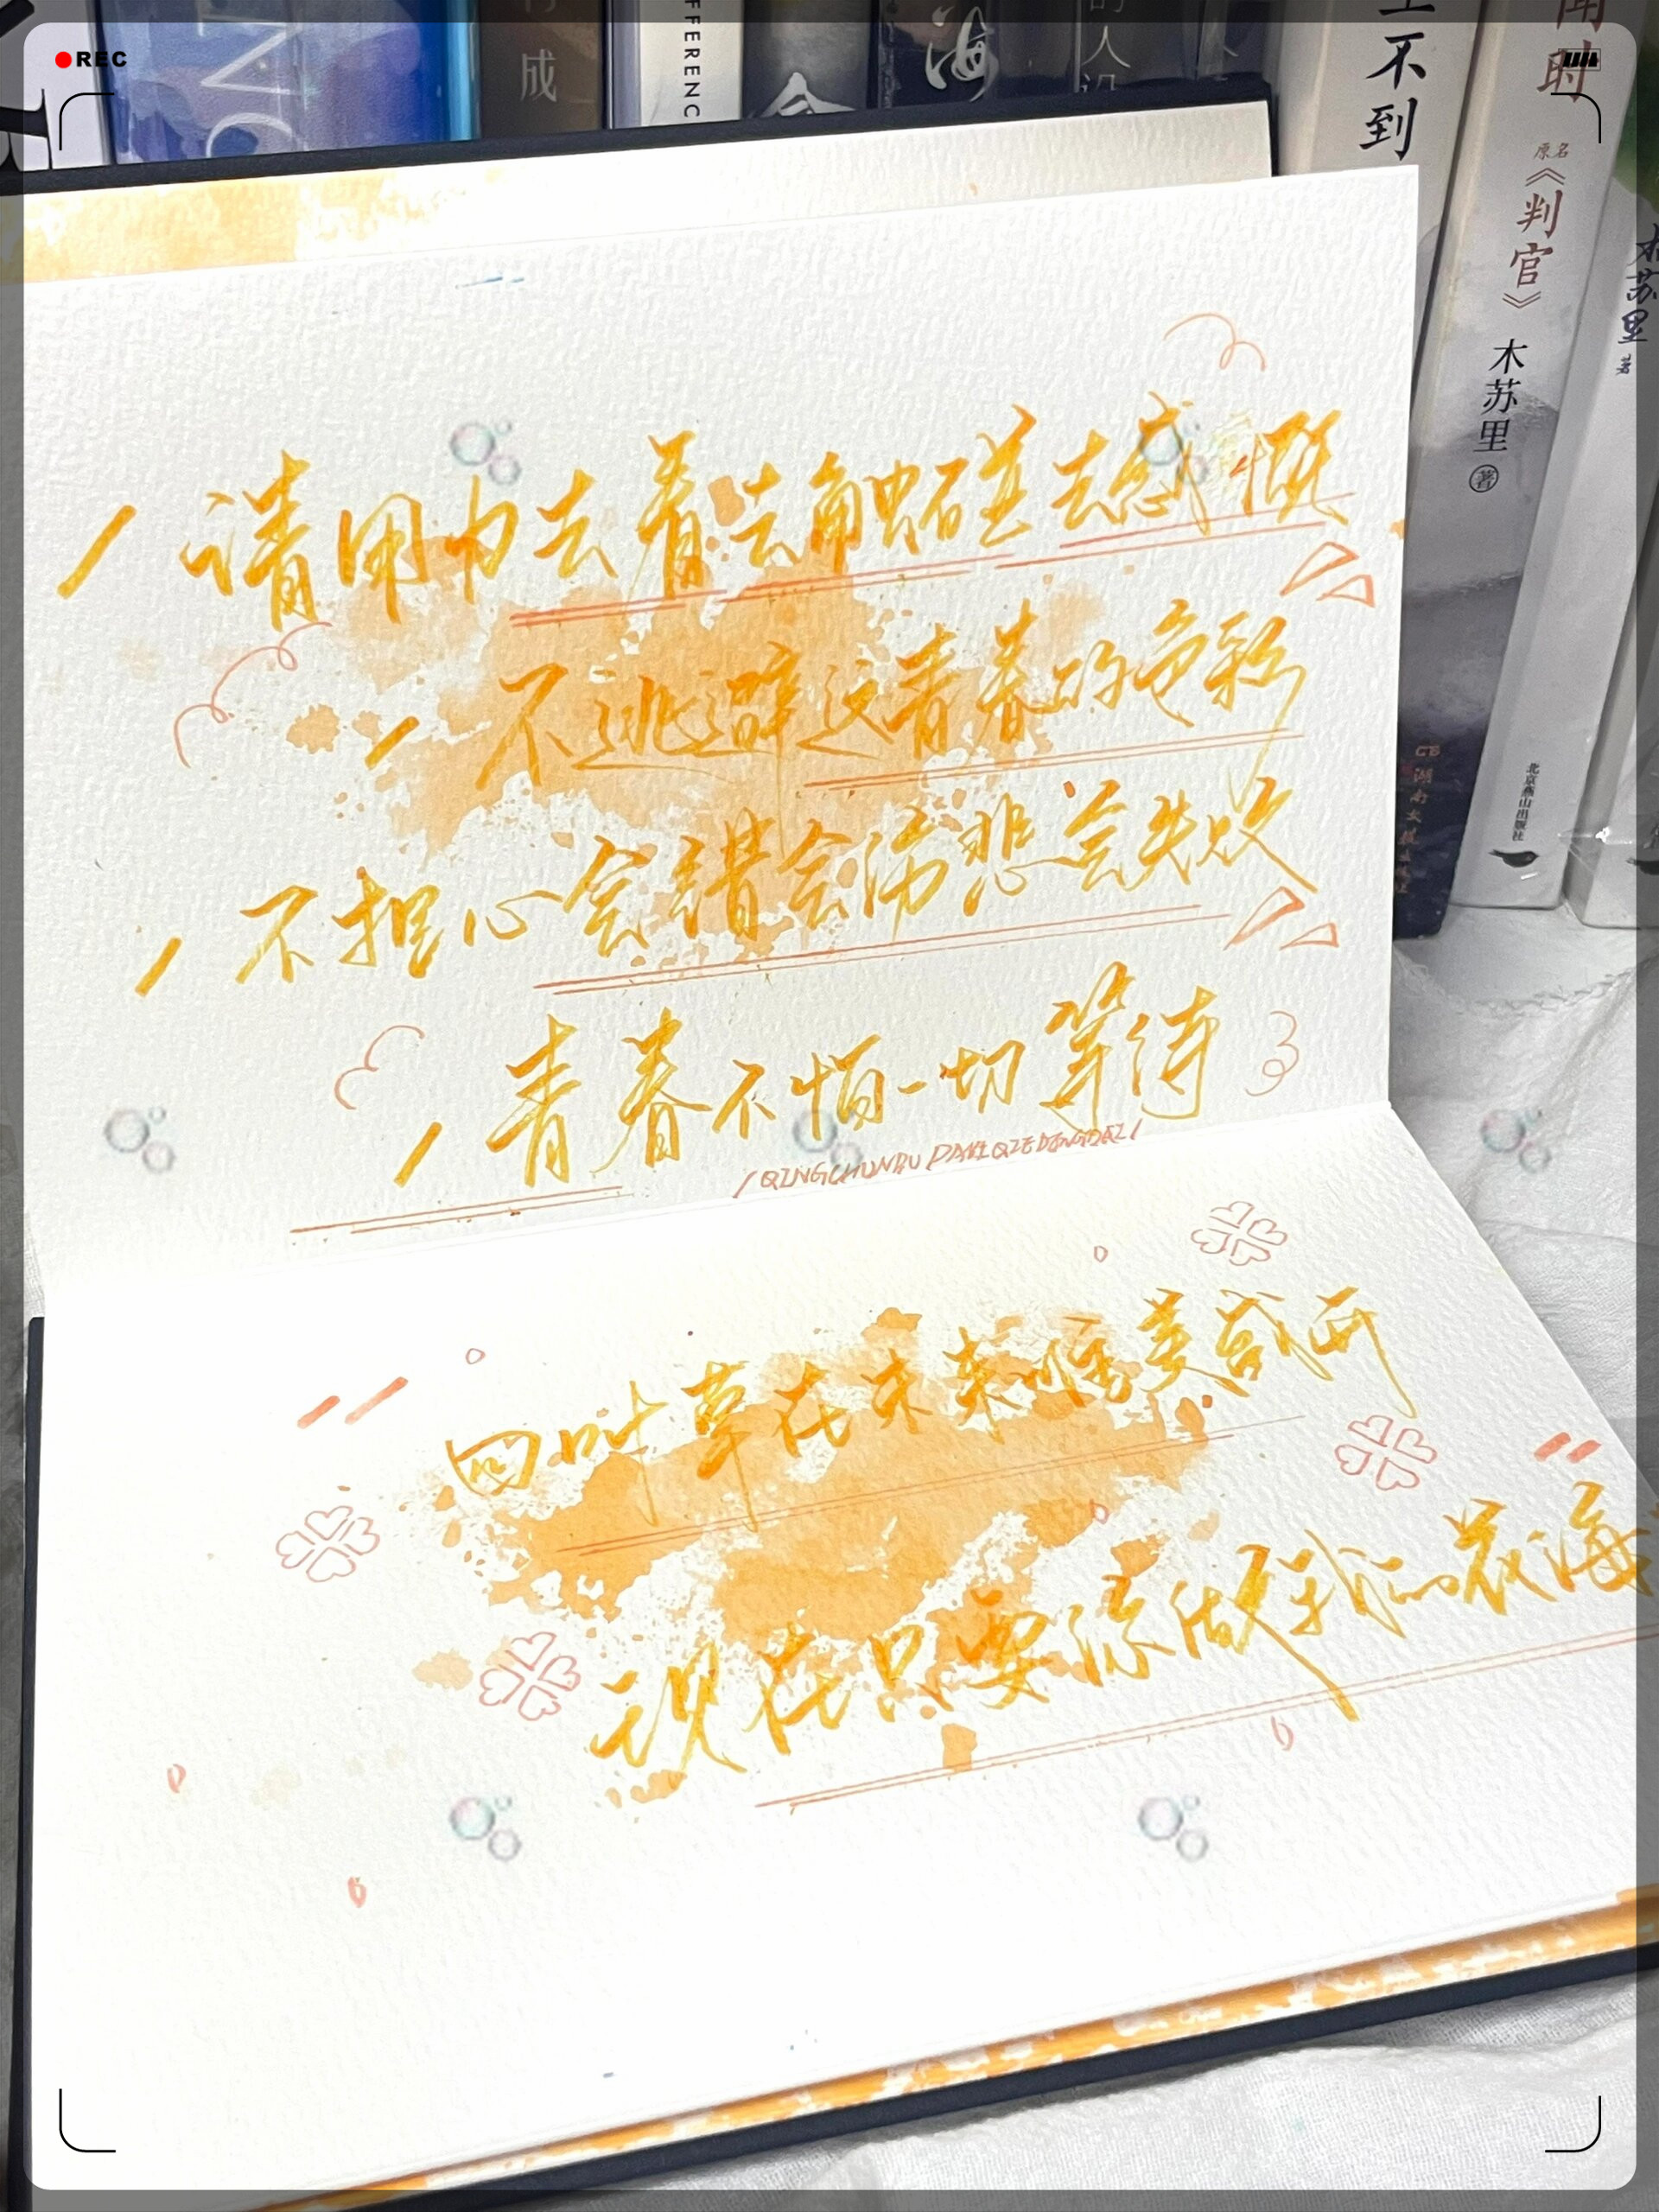 REC
成
FFERENC
海
的人设
不到
时
原名
《判官》
木苏里 著
北京燕山出版社
木苏里 著
/ 请用力去看去触碰去感慨
/ 不逃避这青春的色彩
/ 不担心会错会伤悲会失败
/ 青春不怕一切等待
/QINGCHUNBU PAYIQIEDENGDAI/
四叶草在未来唯美盛开
现在只要你做我的花海